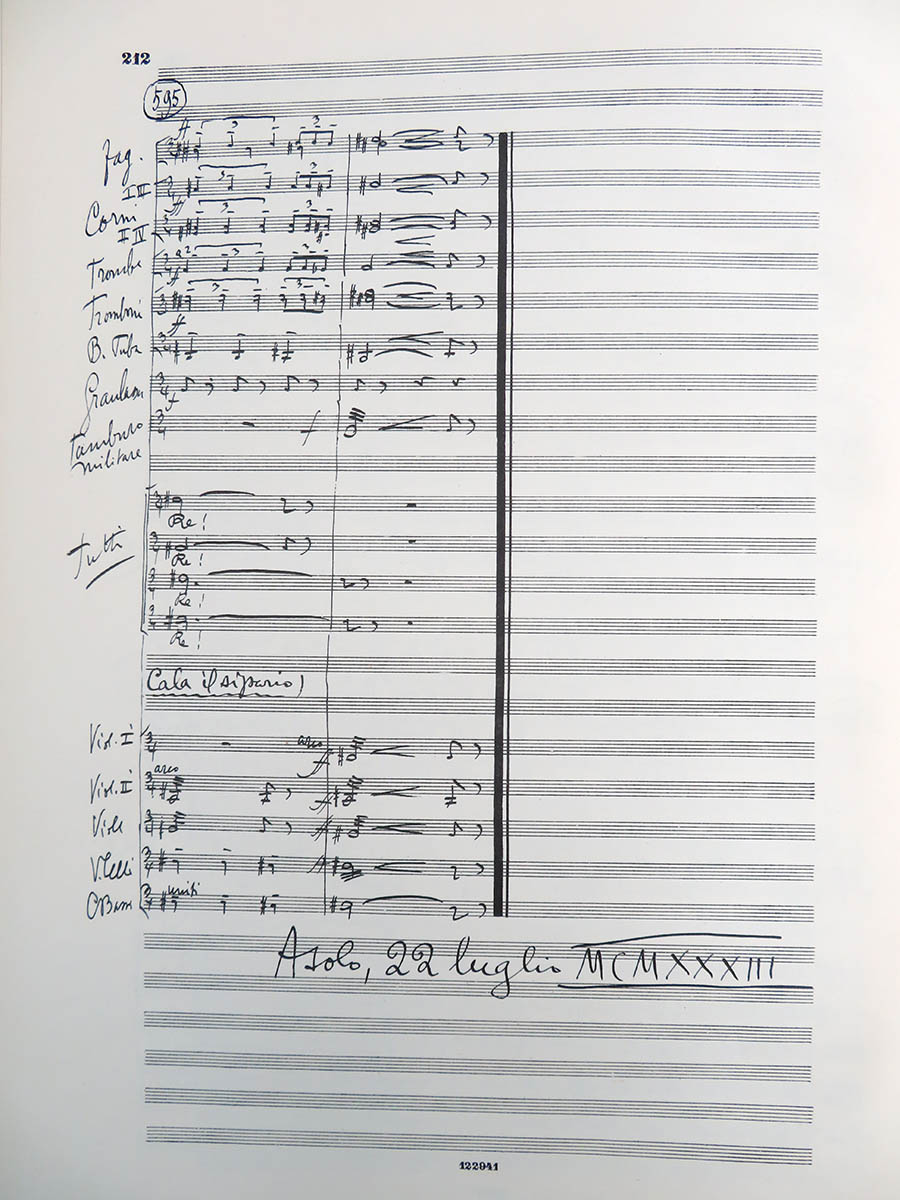 212
595
Fag.
I III
Corni
II IV
Trombe
a 2
Tromboni
B. Tuba
f
Tamburo
militare
f
Tutti
Re!
Re!
Re!
Re!
Cala il sipario)
Viol. I
arco
f
Viol. II
arco
f
Viole
V.celli
uniti
CBassi
Asolo, 22 luglio MCMXXXIII
122941